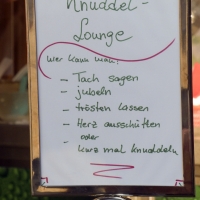 Knuddel -
Lounge
Hier kann man:
- Tach sagen
- jubeln
- trösten lassen
- Herz ausschütten
oder
- kurz mal knuddeln